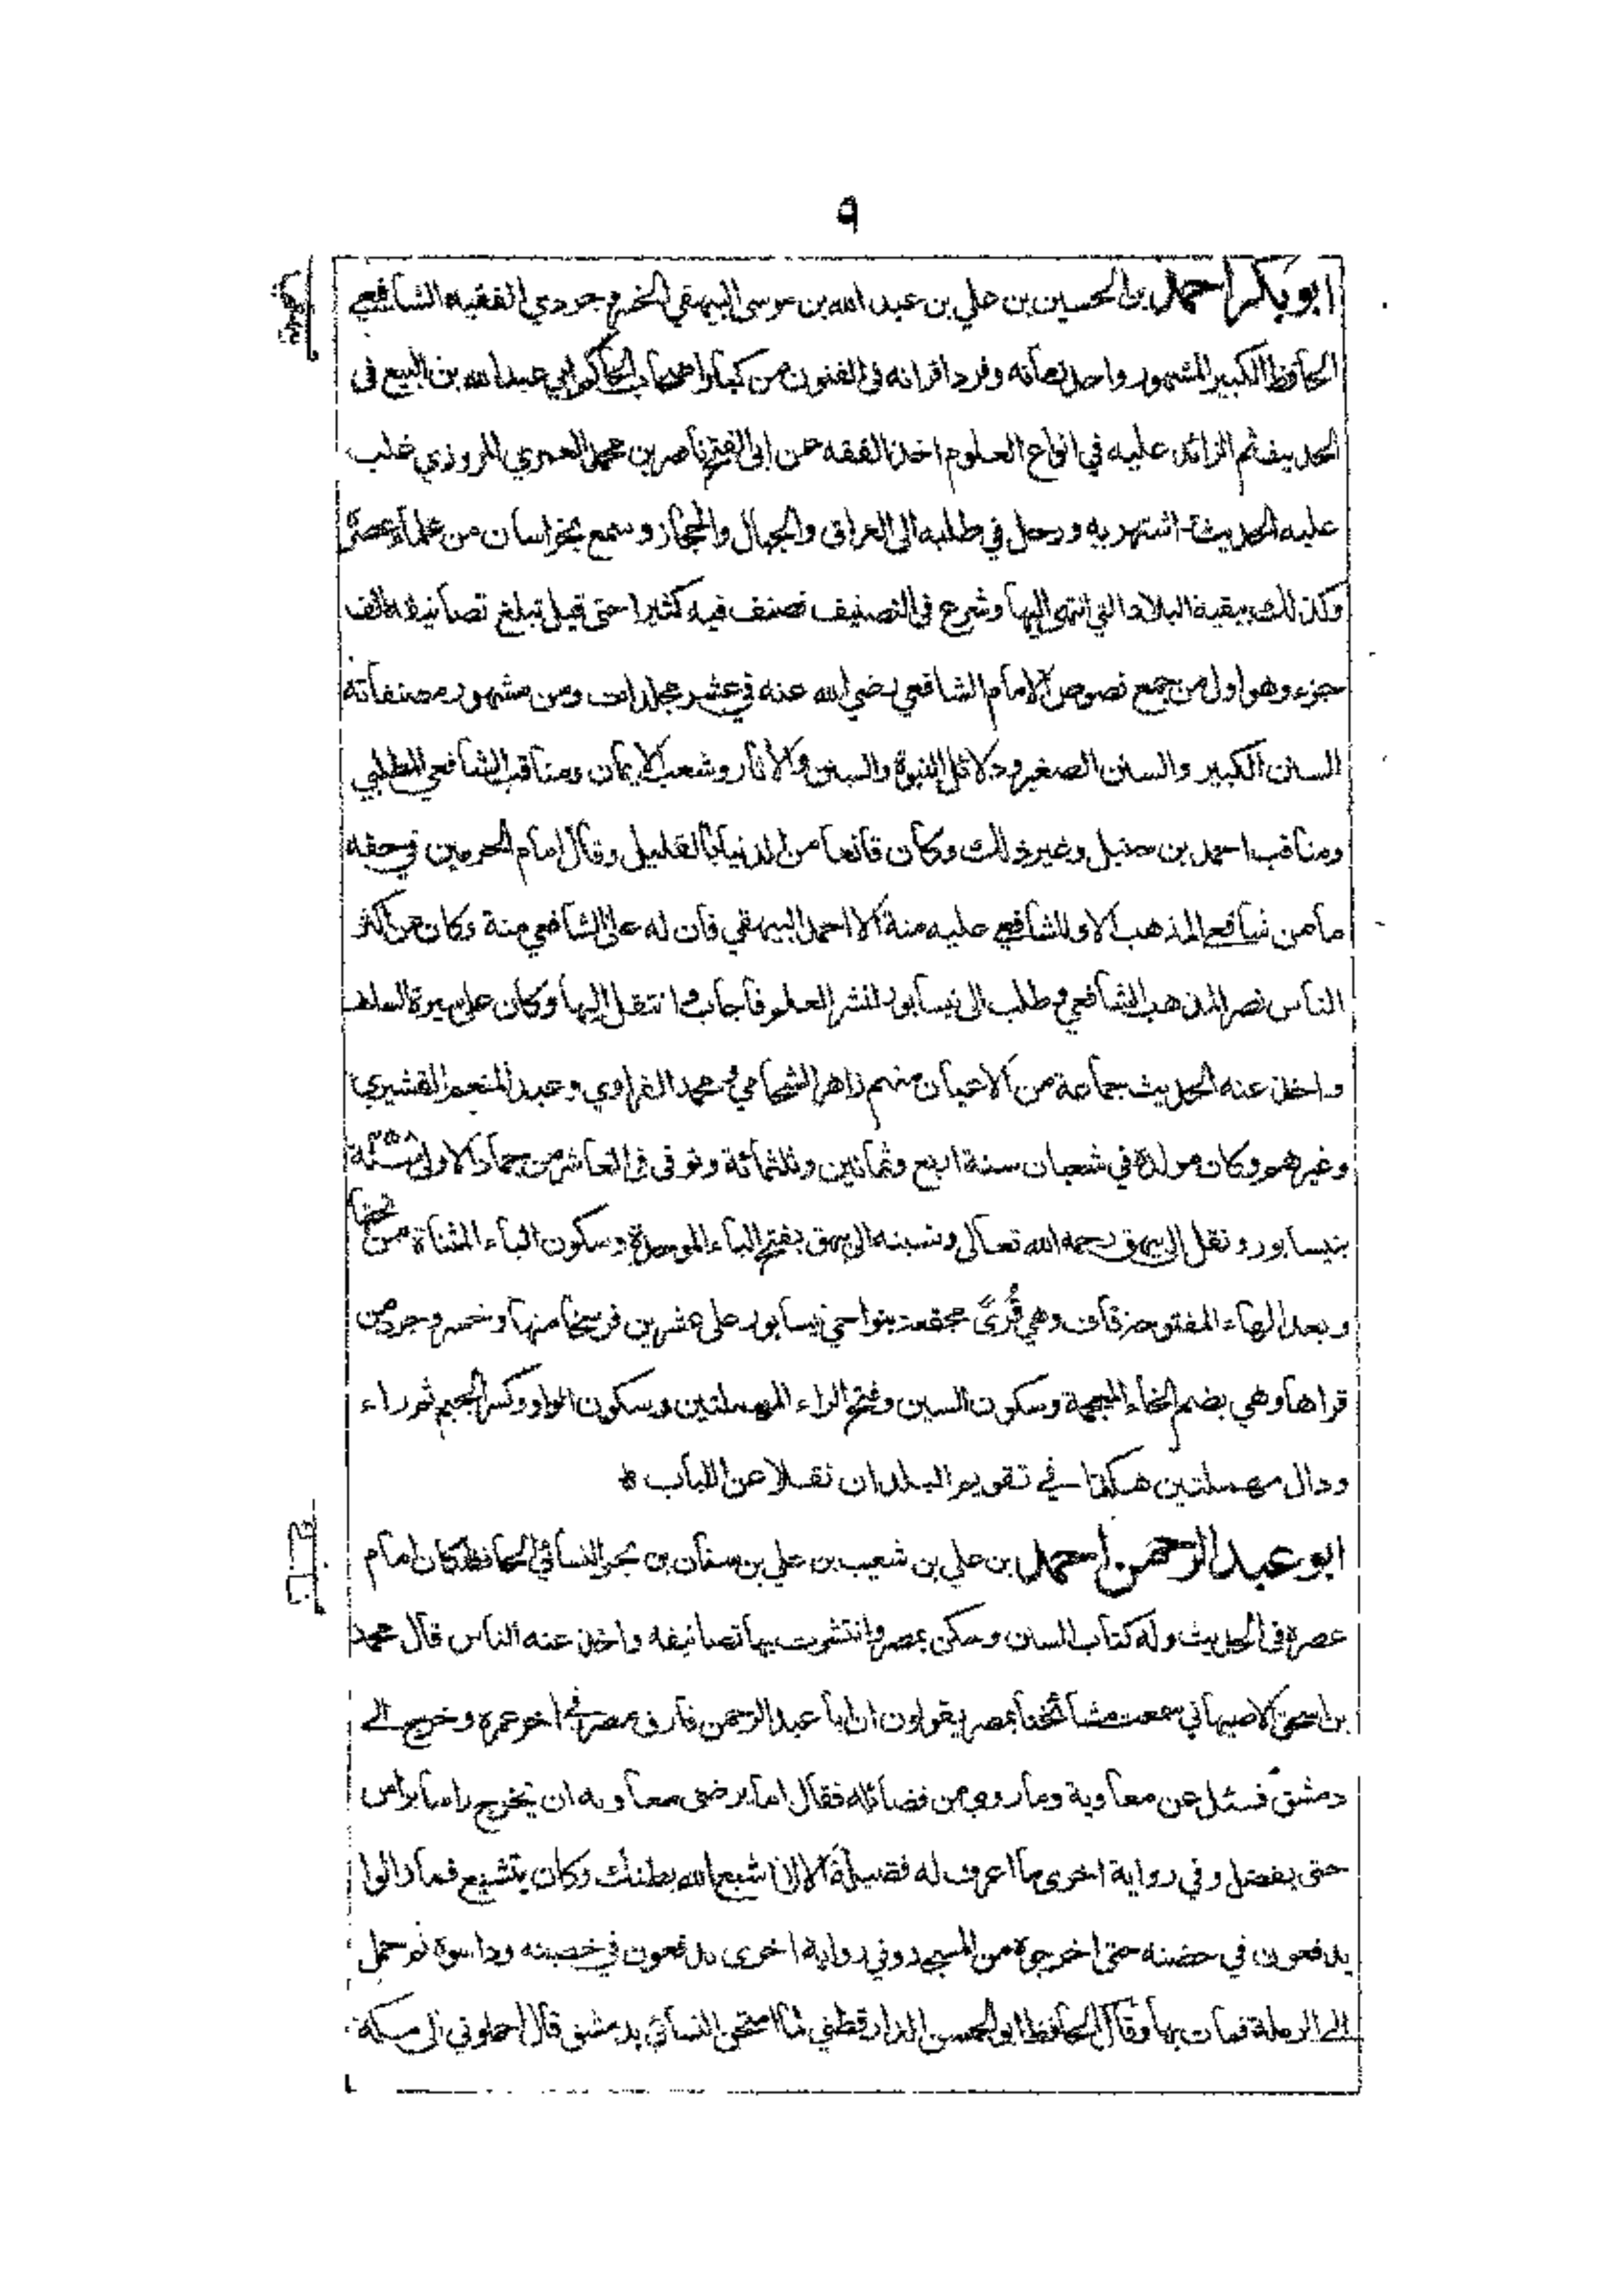 ٩
ابوبكر احمد بن الحسين بن علي بن عبد الله بن موسى البيهقي الخسروجردي الفقيه الشافعي
الحافظ الكبير المشهور واحد زمانه وفرد اقرانه في الفنون من كبار اصحاب الحاكم ابي عبد الله بن البيع في
الحديث ثم الزائد عليه في انواع العلوم اخذ الفقه عن ابى الفتح ناصر بن محمد العمري المروزي غلب
عليه الحديث اشتهر به ورحل في طلبه الى العراق والجبال والحجاز وسمع بخراسان من علماء عصره
وكذلك ببقية البلاد التي انتهى اليها وشرع في التصنيف فصنف فيه كثيرا حتى قيل تبلغ تصانيفه الف
جزء وهو اول من جمع نصوص الامام الشافعي رضي الله عنه في عشر مجلدات ومن مشهور مصنفاته
السنن الكبير والسنن الصغير ودلائل النبوة والسنن والآثار وشعب الايمان ومناقب الشافعي المطلبي
ومناقب احمد بن حنبل وغير ذلك وكان قانعا من الدنيا بالقليل وقال امام الحرمين في حقه
ما من شافعي المذهب الا وللشافعي عليه منة الا احمد البيهقي فان له على الشافعي منة وكان من اكثر
الناس نصرا لمذهب الشافعي وطلب الى نيسابور لنشر العلم فأجاب وانتقل اليها وكان على سيرة السلف
واخذ عنه الحديث جماعة من الاعيان منهم زاهر الشحامي ومحمد الفراوي وعبد المنعم القشيري
وغيرهم وكان مولده في شعبان سنة اربع وثمانين وثلثمائة وتوفى في العاشر من جمادى الاولى سنة ٤٥٨
بنيسابور ونقل الى بيهق رحمه الله تعالى ونسبته الى بيهق بفتح الباء الموحدة وسكون الياء المثناة من تحتها
وبعد الهاء المفتوحة قاف وهي قُرًى مجتمعة بنواحي نيسابور على عشرين فرسخا منها وخسروجرد من
قراها وهي بضم الخاء المعجمة وسكون السين وفتح الراء المهملتين وسكون الواو وكسر الجيم ثم راء
ودال مهملتين هكذا في تقويم البلدان نقلا عن اللباب
ابو عبد الرحمن احمد بن علي بن شعيب بن علي بن سنان بن بحر النسائي الحافظ كان امام
عصره في الحديث وله كتاب السنن وسكن بمصر وانتشرت بها تصانيفه واخذ عنه الناس قال محمد
بن اسحق الاصبهاني سمعت مشائخنا بمصر يقولون ان ابا عبد الرحمن فارق مصر في اخر عمره وخرج الى
دمشق فسئل عن معاوية وما روي من فضائله فقال اما يرضى معاويه ان يخرج راسا براس
حتى يفضل وفي رواية اخرى ما اعرف له فضيلة الا لا اشبع الله بطنك وكان يتشيع فما زالوا
يدفعون في حضنه حتى اخرجوه من المسجد وفي رواية اخرى يدفعون في خصيته وداسوه ثم حمل
الى الرملة فمات بها وقال الحافظ ابو الحسن الدارقطني لما امتحن النسائي بدمشق قال احملوني الى مكة